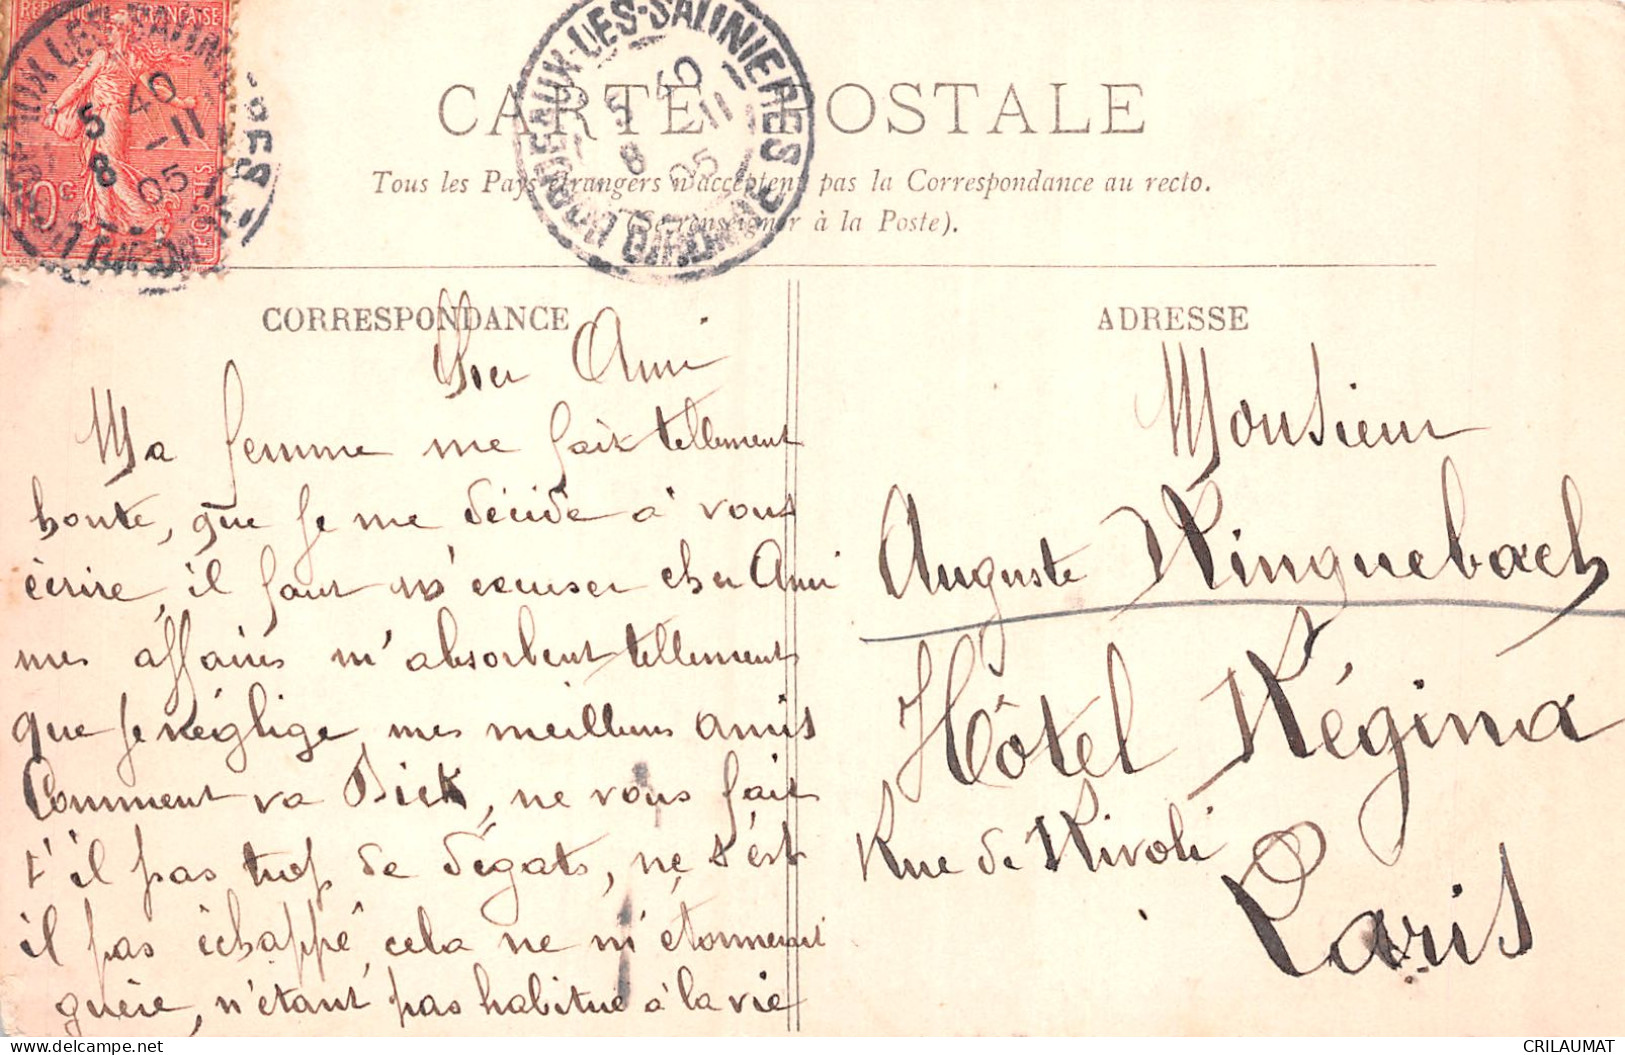 REPUBLIQUE FRANÇAISE
10c
POSTES
BORDEAUX-LES-SALINIERES
5 40
8 -11
05
GIRONDE
CARTE POSTALE
Tous les Pays étrangers n'acceptent pas la Correspondance au recto.
(Se renseigner à la Poste).
CORRESPONDANCE
Cher Ami
Ma femme me fait tellement
honte, que je me décide à vous
écrire, il faut m'excuser cher Ami
mes affaires m'absorbent tellement
que je néglige mes meilleurs amis
Comment va Dick, ne vous fait
t'il pas trop de dégats, ne s'est
il pas échappé, cela ne m'étonnerait
guère, n'étant pas habitué à la vie
ADRESSE
Monsieur
Auguste Ringuebach
Hôtel Régina
Rue de Rivoli
à
Paris
CRILAUMAT